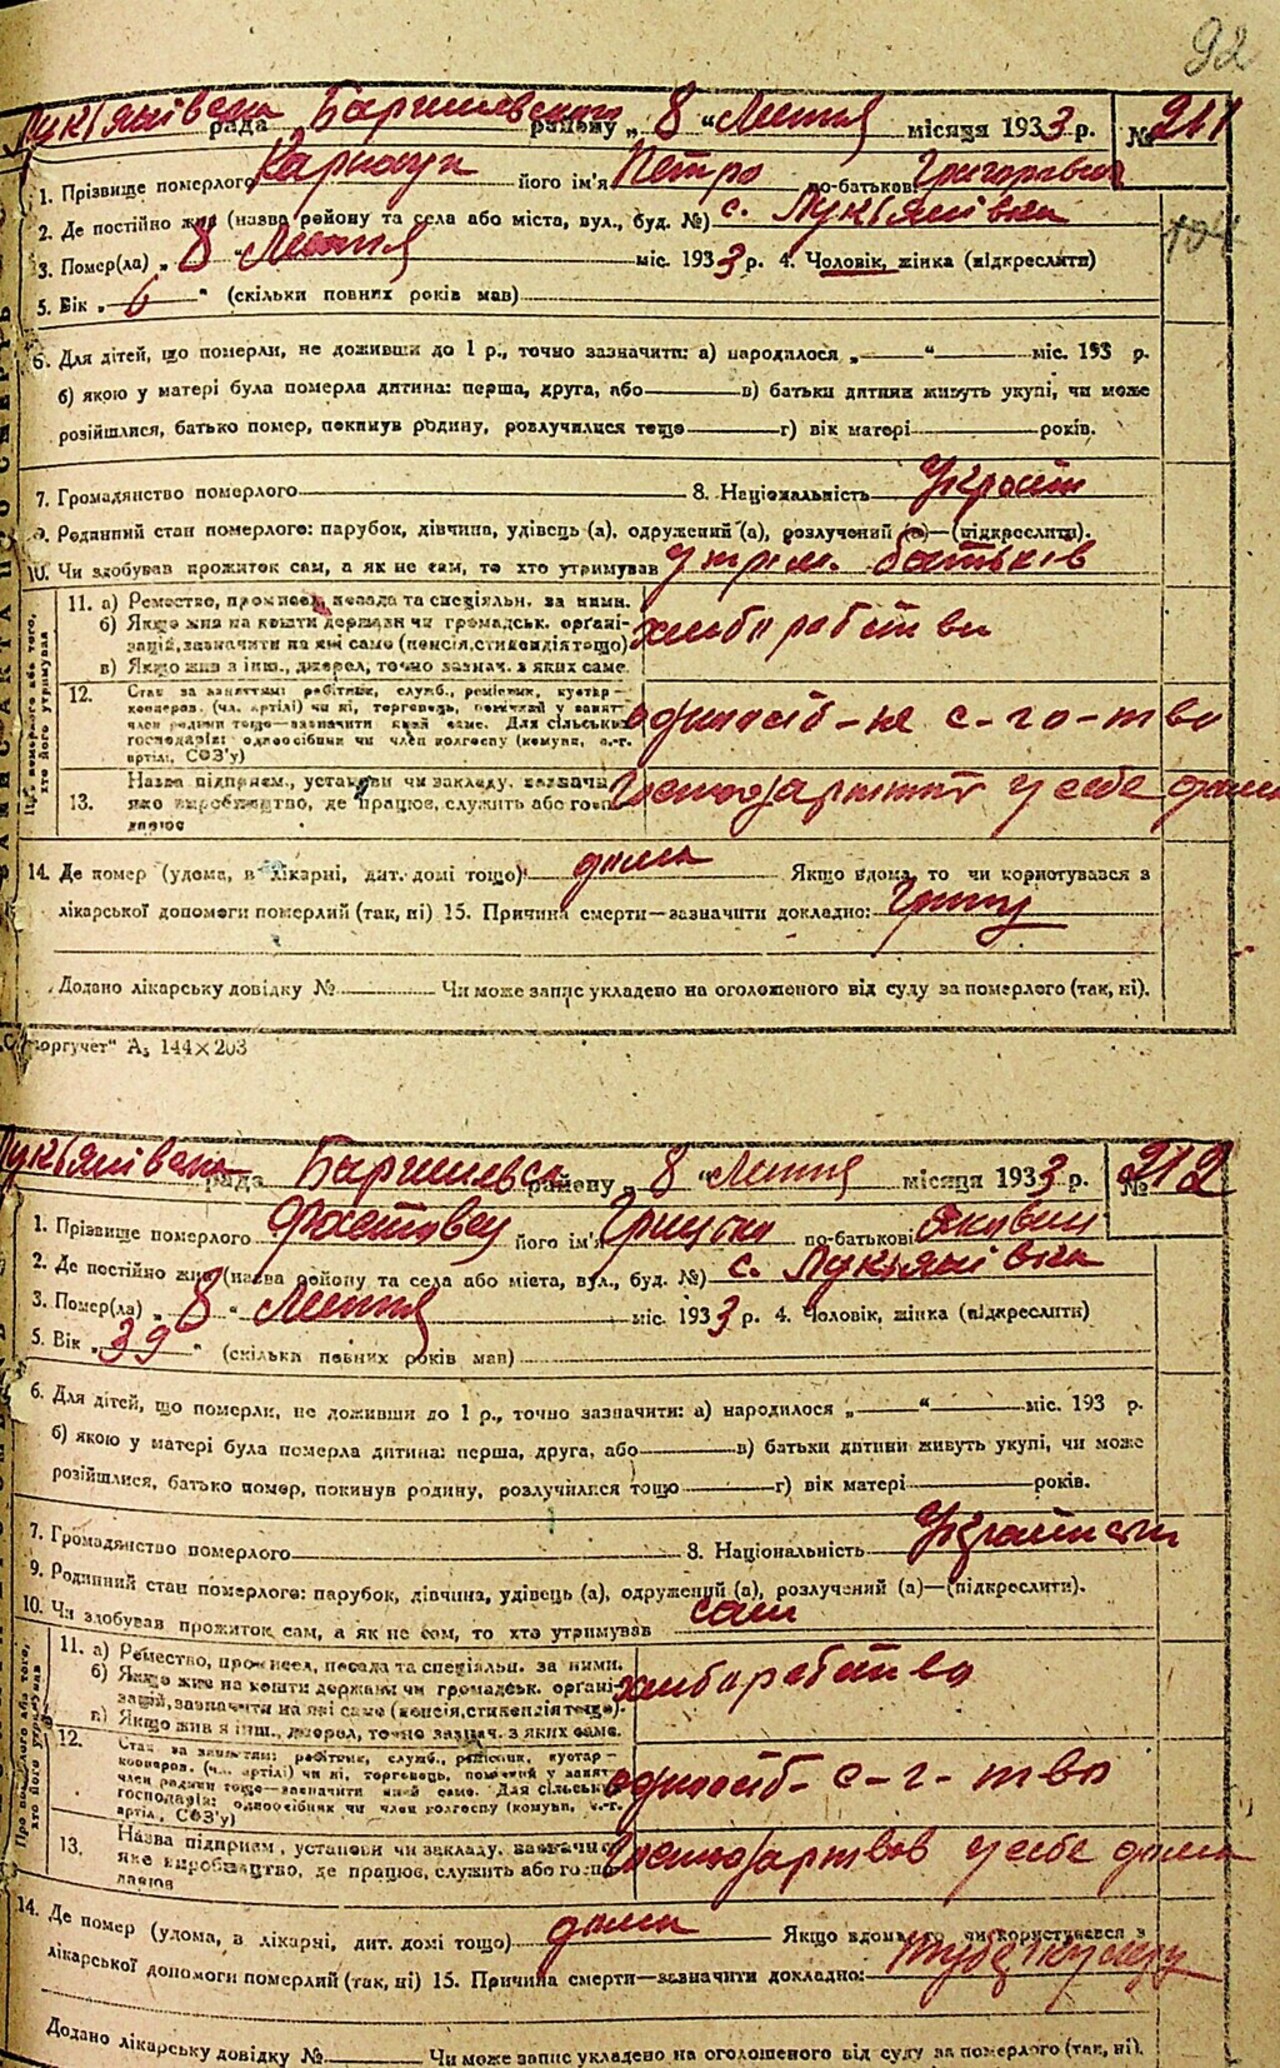 92
Лук'янівська рада Баришевського району „ 8 “ Липня місяця 1933 р. № 211
1. Прізвище померлого Карнаух його ім'я Петро по-батькові Григорович
2. Де постійно жив (назва району та села або міста, вул., буд. №) с. Лук'янівка
3. Помер(ла) „ 8 “ Липня міс. 1933 р. 4. Чоловік, жінка (підкреслити)
5. Вік „ 6 “ (скільки повних років мав)
6. Для дітей, що померли, не доживши до 1 р., точно зазначити: а) народилося „ “ міс. 193 р.
б) якою у матері була померла дитина: перша, друга, або в) батьки дитини живуть укупі, чи може
розійшлися, батько помер, покинув родину, розлучилися тощо г) вік матері років.
7. Громадянство померлого 8. Національність Україн
9. Родинний стан померлого: парубок, дівчина, удівець (а), одружений (а), розлучений (а)—(підкреслити).
10. Чи здобував прожиток сам, а як не сам, то хто утримував утрим. батьків
Про померлого або того, хто його утримував
11. а) Ремество, промисел, посада та спеціяльн. за ними.
б) Якщо жив на кошти держави чи громадськ. орґані-
зацій, зазначити на які саме (пенсія, стипендія тощо) хлібу робітви
в) Якщо жив з інш., джерел, точно зазнач. з яких саме.
12. Стан за заняттям: робітник, служб., ремісник, кустар—
кооперов. (чл. артілі) чи ні, торговець, помічний у занят.
член родини тощо—зазначити який саме. Для сільськ. одноосіб-не с-го-тво
господарів: одноосібник чи член колгоспу (комуни, с.-г.
артілі, СОЗ'у)
13. Назва підприєм., установи чи закладу, зазначити
яке виробництво, де працює, служить або госпо- у себе дома
дарює
14. Де помер (удома, в лікарні, дит. домі тощо) дома Якщо вдома, то чи користувався з
лікарської допомоги померлий (так, ні) 15. Причина смерти—зазначити докладно: Грипу
Додано лікарську довідку № Чи може запис укладено на оголошеного від суду за померлого (так, ні).
„Торгучет“ А₅ 144×203
Лук'янівська рада Баришевськ району „ 8 “ Липня місяця 1933 р. № 212
1. Прізвище померлого Фастовец його ім'я Грицько по-батькові Якович
2. Де постійно жив (назва району та села або міста, вул., буд. №) с. Лук'янівка
3. Помер(ла) „ 8 “ Липня міс. 1933 р. 4. Чоловік, жінка (підкреслити)
5. Вік „ 39 “ (скільки повних років мав)
6. Для дітей, що померли, не доживши до 1 р., точно зазначити: а) народилося „ “ міс. 193 р.
б) якою у матері була померла дитина: перша, друга, або в) батьки дитини живуть укупі, чи може
розійшлися, батько помер, покинув родину, розлучилися тощо г) вік матері років.
7. Громадянство померлого 8. Національність
9. Родинний стан померлого: парубок, дівчина, удівець (а), одружений (а), розлучений (а)—(підкреслити).
10. Чи здобував прожиток сам, а як не сом, то хто утримував сам
Про померлого або того, хто його утримував
11. а) Ремество, промисел, посада та спеціяльн. за ними.
б) Якщо жив на кошти держави чи громадськ. орґані-
зацій, зазначити на які саме (пенсія, стипендія тощо). хліборобство
в) Якщо жив з інш., джерел, точно зазнач. з яких саме.
12. Стан за заняттям: робітник, служб., ремісник, кустар—
кооперов. (чл. артілі) чи ні, торговець, помічний у занят.
член родини тощо—зазначити який саме. Для сільськ. одноосіб- с-г- тво
господарів: одноосібник чи член колгоспу (комуни, с.-г.
артілі, СОЗ'у)
13. Назва підприєм., установи чи закладу, зазначити
яке виробництво, де працює, служить або госпо- Господартвов у себе дома
дарює
14. Де помер (удома, в лікарні, дит. домі тощо) дома Якщо вдома, то чи користувався з
лікарської допомоги померлий (так, ні) 15. Причина смерти—зазначити докладно:
Додано лікарську довідку № Чи може запис укладено на оголошеного від суду за померлого (так, ні).